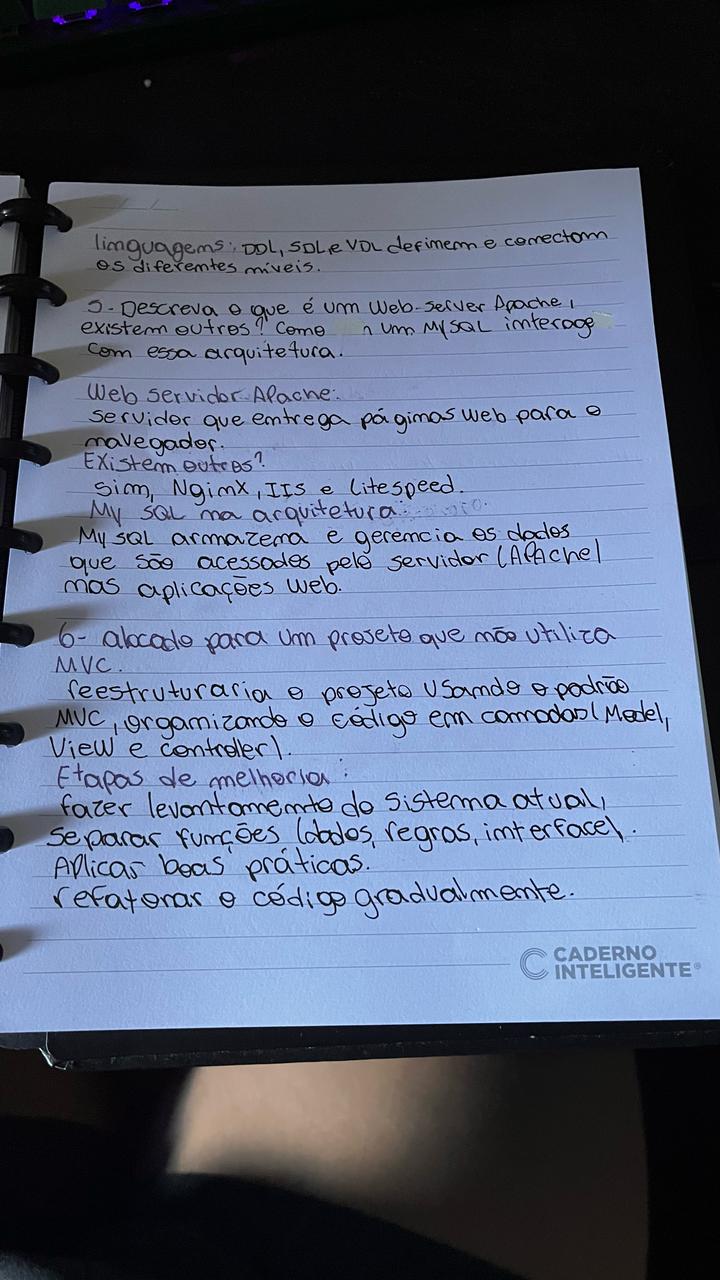 linguagens: DDL, SDL e VDL definem e conectam
os diferentes níveis.
5- Descreva o que é um Web-server Apache,
existem outros? Como um MySQL interage
com essa arquitetura.
Web servidor Apache:
servidor que entrega páginas web para o
navegador.
Existem outros?
Sim, NginX, IIS e Litespeed.
My SQL na arquitetura:
My SQL armazena e gerencia os dados
que são acessados pelo servidor (APAche)
nas aplicações web.
6- alocado para um projeto que não utiliza
MVC.
reestruturaria o projeto usando o padrão
MVC, organizando o código em camadas (Model,
View e controler).
Etapas de melhoria:
fazer levantamento do sistema atual,
separar funções (dados, regras, interface).
Aplicar boas práticas.
refatorar o código gradualmente.
CADERNO
INTELIGENTE®